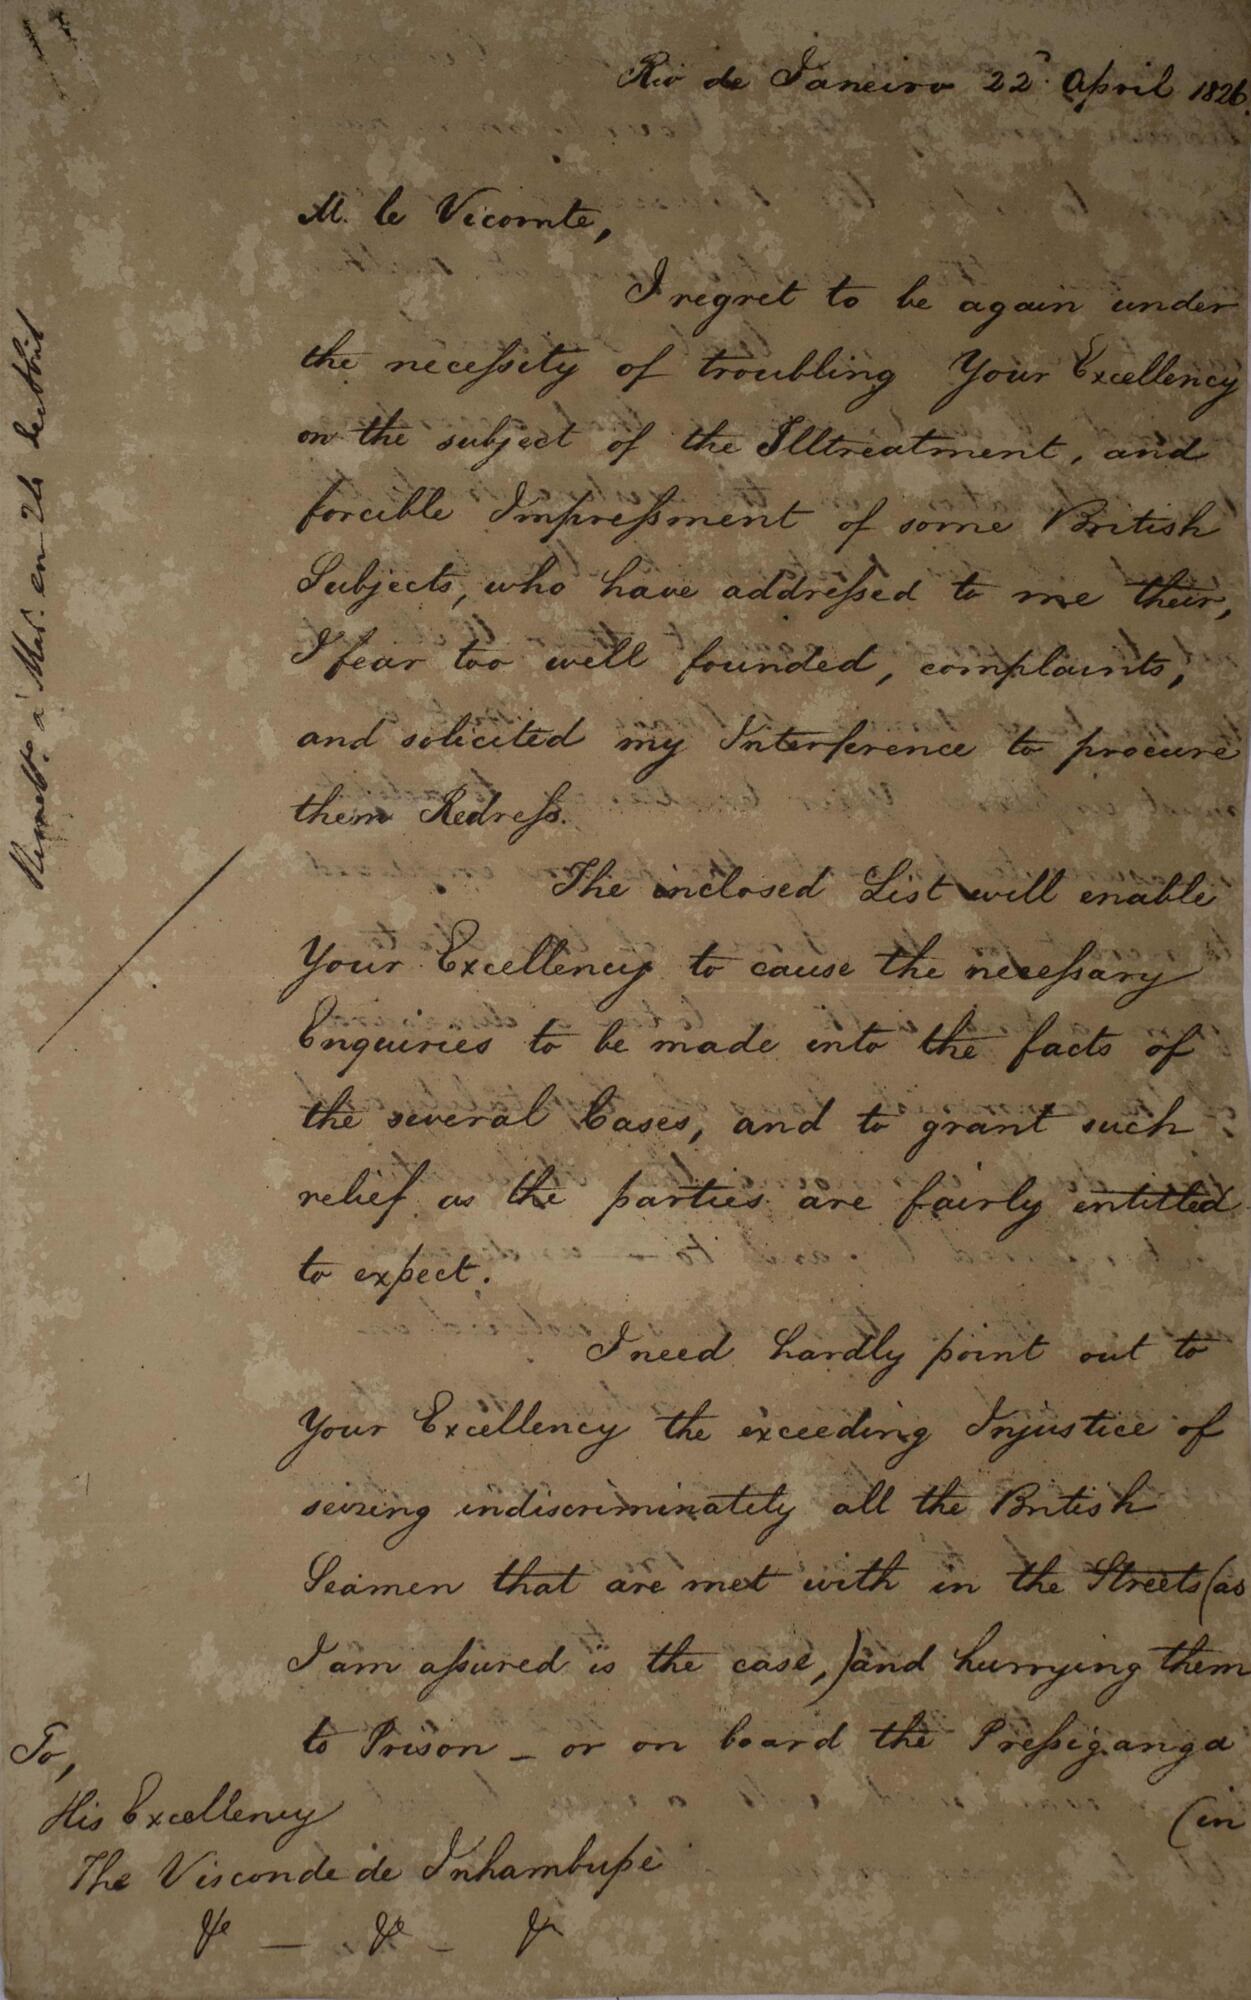 Rio de Janeiro 22d April 1826.
M. le Vicomte,
I regret to be again under
the necessity of troubling Your Excellency
on the subject of the Illtreatment, and
forcible Impressment of some British
Subjects, who have addressed to me their,
I fear too well founded, complaints,
and solicited my Interference to procure
them Redress.
The inclosed List will enable
Your Excellency to cause the necessary
Enquiries to be made into the facts of
the several Cases, and to grant such
relief as the parties are fairly entitled
to expect.
I need hardly point out to
Your Excellency the exceeding Injustice of
seizing indiscriminately all the British
Seamen that are met with in the Streets (as
I am assured is the case,) and hurrying them
to Prison _ or on board the Pressiganga
(in
To,
His Excellency
The Visconde de Inhambupe
&c _ &c _ &c
a Mar. en 26